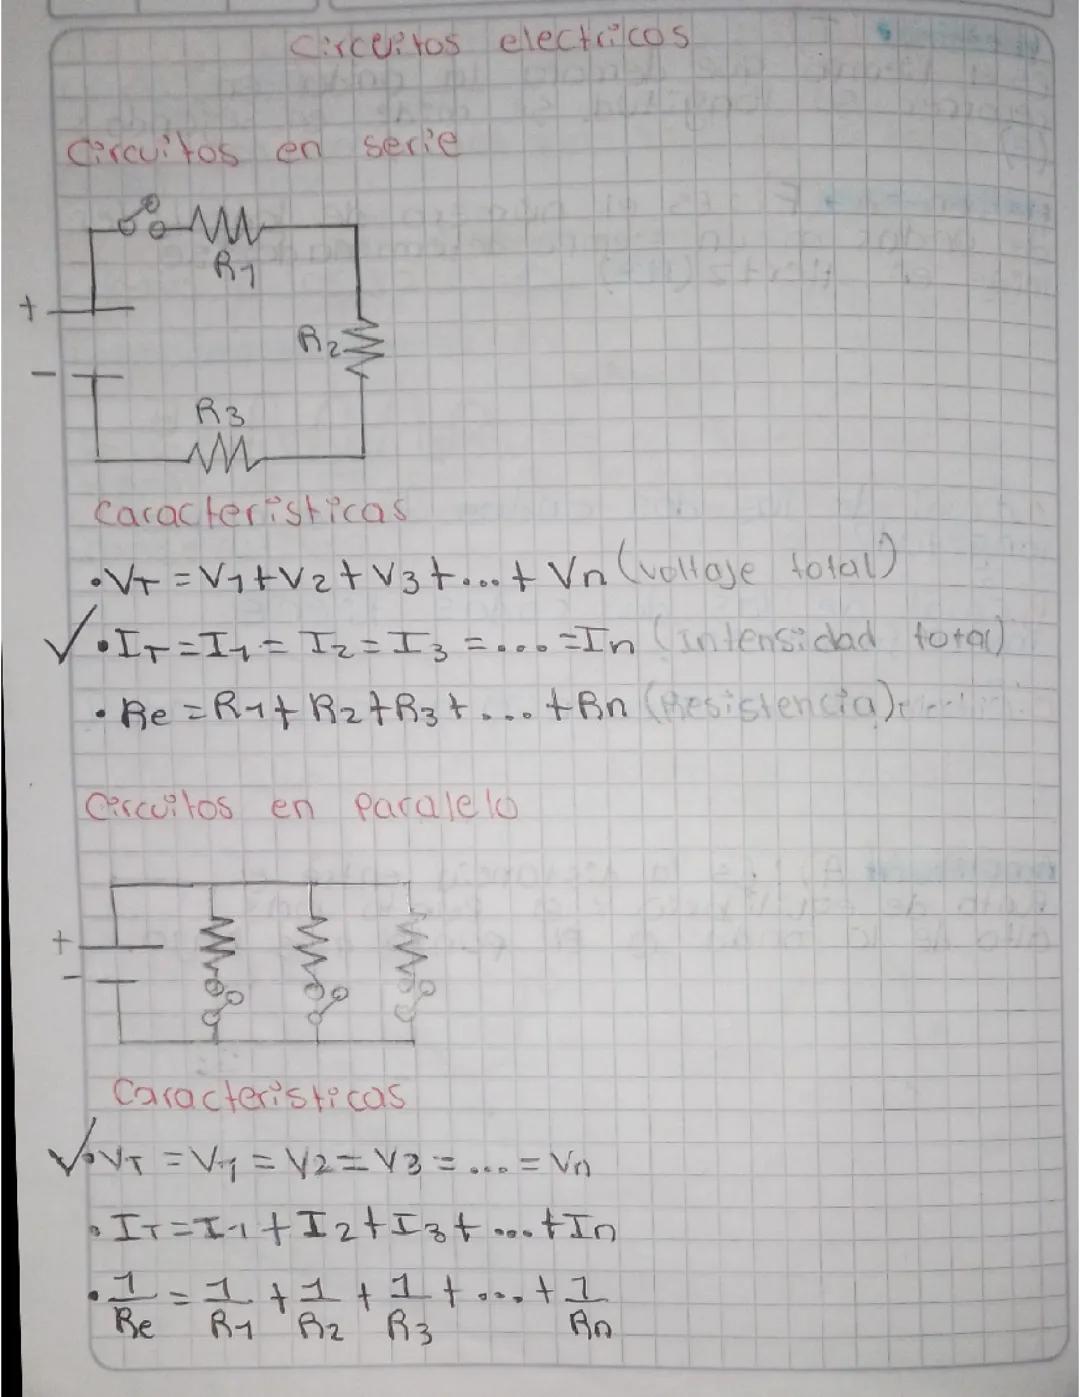 Circuitos electricos
Circuitos en serie
R1
+
R2
-
R3
Caracteristicas
•VT = V1+V2+V3+...+Vn (voltaje total)
✓•IT=I1=I2=I3=...=In (Intensidad total)
•Re=R1+R2+R3+...+Rn (Resistencia)
Circuitos en paralelo
+
-
Caracteristicas
✓•VT=V1=V2=V3=...=Vn
•IT=I1+I2+I3+...+In
•1/Re = 1/R1 + 1/R2 + 1/R3 + ... + 1/Rn